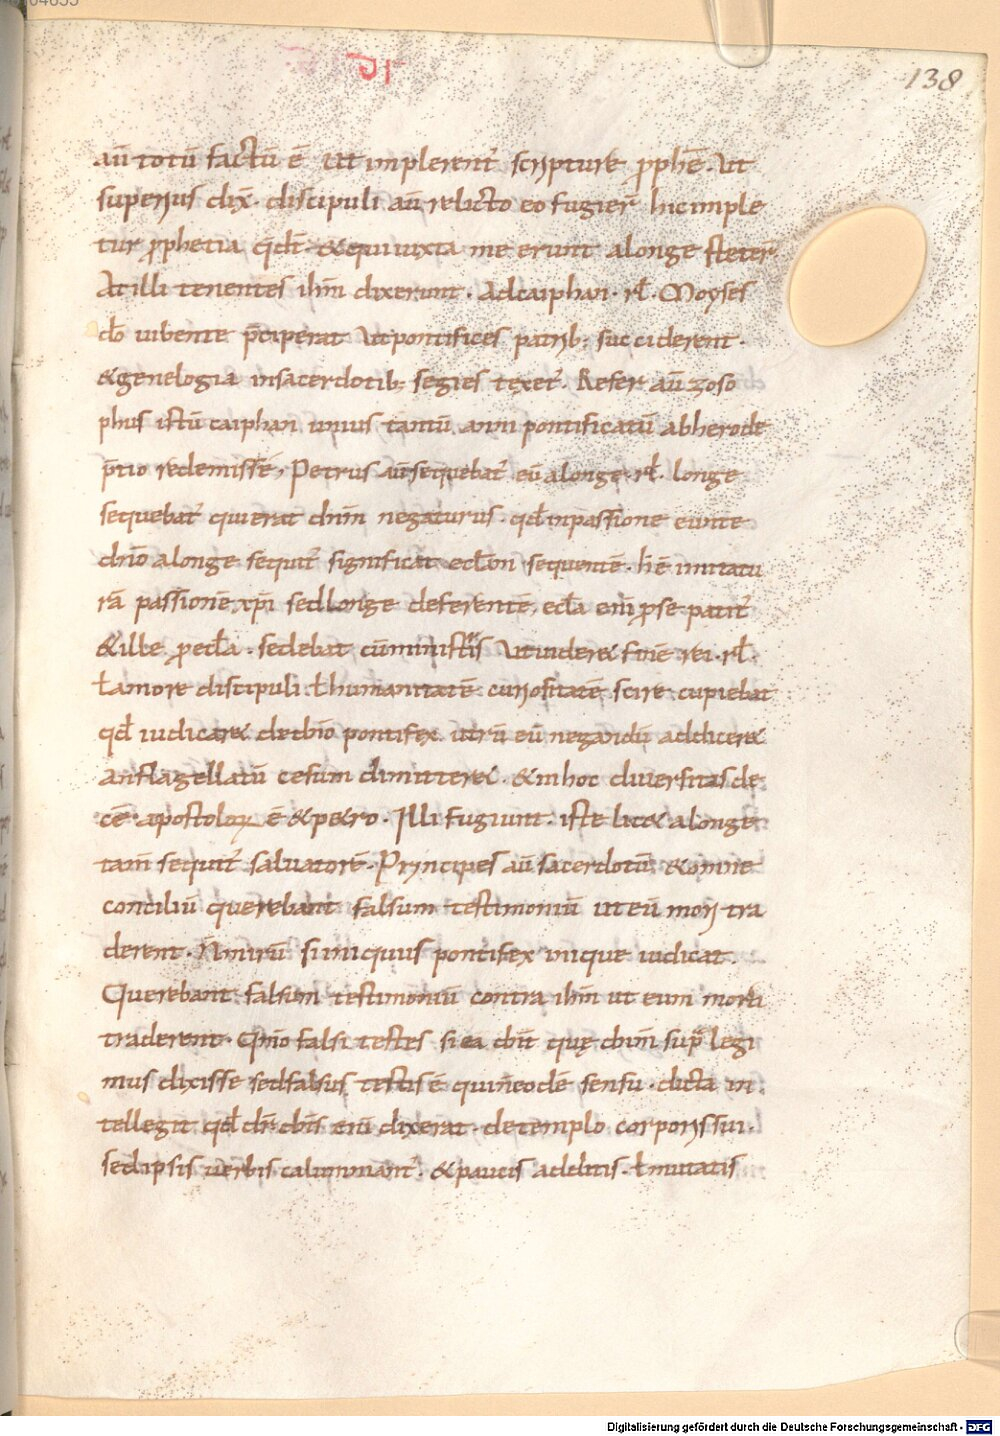 138
aū totū factū ē ut implerent᷑ scripturę ꝓphē. Ut
superius dix̄. discipuli aū relicto eo fugier̄ hic imple
tur ꝓphetia q̄ dt̄. &qui iuxta me erunt alonge steter̄
At illi tenentes ihm̄ dixerunt. Adcaiphan. rl̄. Moyses
dō iubente p̄ciperat Utpontifices patrib; succiderent.
&genelogia insacerdotib; segies texet᷑. Refer aū ioso
phus istū caiphan unius tantū anni pontificatū abherode
p̄tio redemisse, Petrus aū sequebat᷑ eū alonge. rl̄. longe
sequebat᷑ qui erat dnm̄ negaturus. qd̄ inpassione eunte
dnō alonge sequit᷑ significat eccl̄am sequentē. h̄ ē imitatu
rā passionē xp̄i sedlonge deferentē, eccl̄a enī ꝓse patit᷑
&ille ꝓ eccl̄a. sedebat cūministris Utuideret finē rei. rl̄.
ł amore discipuli ł humanitatē curiositatē scire cupiebat
qd̄ iudicaret dedn̄o pontifex. utrū eū negandū addiceret
anflagellatū cesum dimitteret. &inhoc diuersitas de
cē apostoloꝝ ē &petro. Illi fugiunt. iste licet alonge
tam̄ sequit᷑ saluatorē. Principes aū sacerdotū &omne
conciliū querebant falsum testimoniū ut eū mori tra
derent. N̄mirū siiniquus pontifex inique iudicat.
Querebant falsum testimoniū contra ihm̄ ut eum morti
traderent. Qm̄o falsi testes si ea dn̄t quę dn̄m sup̄ legi
mus dixisse sedfalsus testis ē qui n̄ eodē sensu. dicta in
tellegit qd̄ dr̄ dn̄s enī dixerat. detemplo corporissui.
sedipsis uerbis calumniant᷑. &paucis additis. ł mutatis
Digitalisierung gefördert durch die Deutsche Forschungsgemeinschaft - DFG